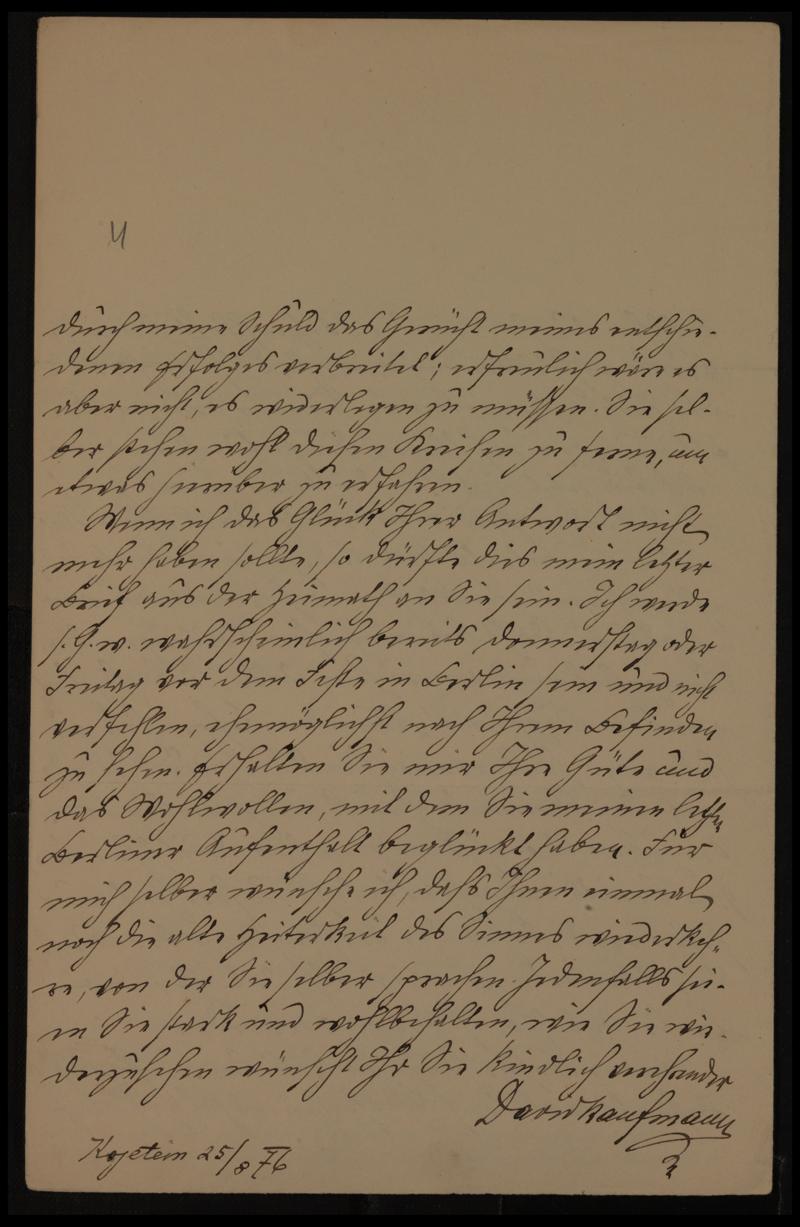 4
durch meine Schuld das Gerücht meines entschie-
denen Erfolges verbreitet; erfreulich wäre es
aber nicht, es widerlegen zu müssen. Sie sel-
ber stehen wohl diesen Kreisen zu ferne, um
etwas hierüber zu erfahren.
Wenn ich das Glück Ihrer Antwort nicht
mehr haben sollte, so dürfte dies mein letzter
Brief aus der Heimath an Sie sein. Ich werde
s. G. w. wahrscheinlich bereits Donnerstag oder
Freitag vor dem Feste in Berlin sein und nicht
verfehlen, ehemöglichst nach Ihrem Befinden
zu sehen. Erhalten Sie mir Ihre Güte und
das Wohlwollen, mit dem Sie meinen letzten
Berliner Aufenthalt beglückt haben. Für
mich selber wünsche ich, dass Ihnen einmal
noch die alte Heiterkeit des Sinnes wiederkeh-
re, von der Sie selber sprachen. Jedenfalls sei-
en Sie stark und wohlbehalten, wie Sie wie-
derzusehen wünscht Ihr Sie kindlich verehrender
David Kaufmann
Kojetein 25/8 76